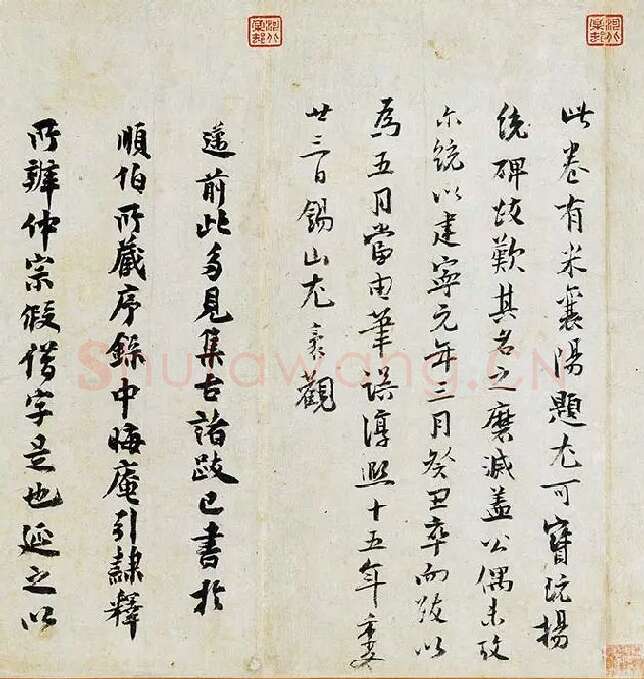 此卷有米襄陽題尤可寶玩揚
統碑跋歎其名之磨滅蓋公偶未攷
尓統以建寧元年三月癸丑卒而跋以
為五月當由筆誤淳熙十五年季夏
廿三日錫山尤袤觀
邁前此多見集古諸跋已書於
順伯所藏序錄中晦庵引隸釋
所辨仲宗假借字是也延之以
Shufawang.CN